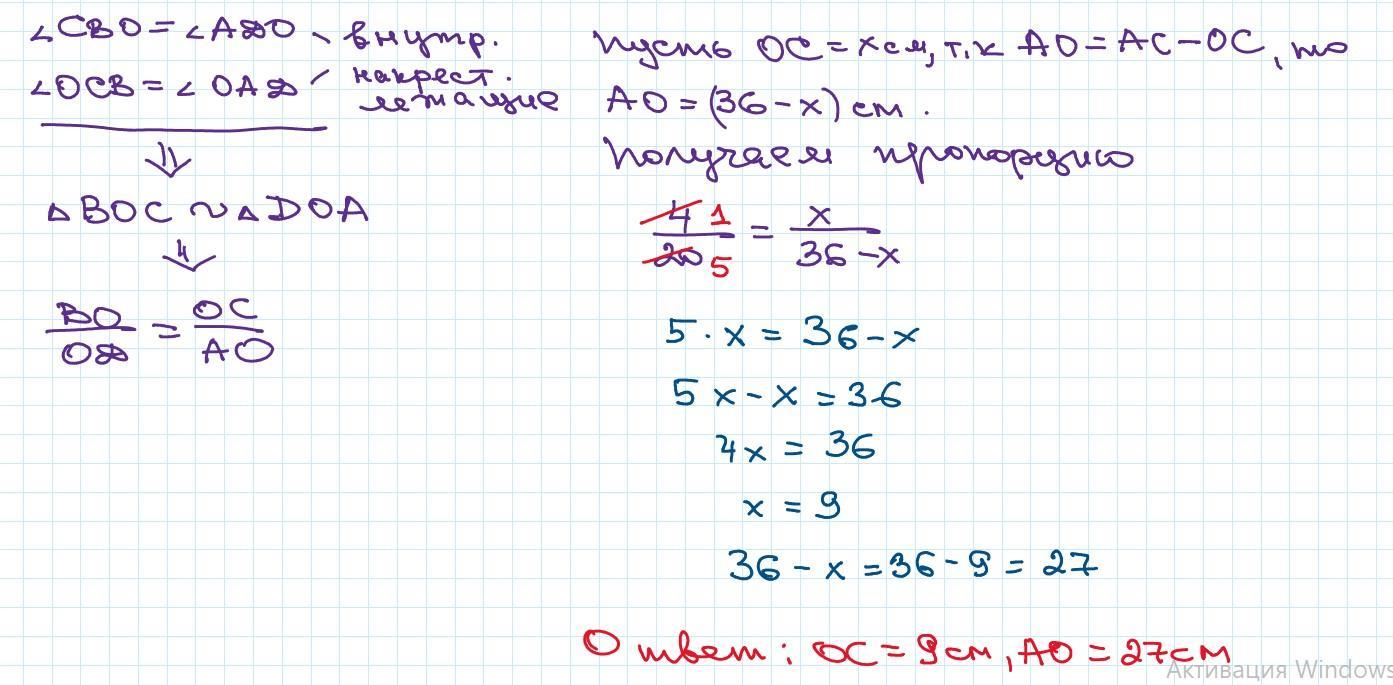 ∠CBO = ∠ADO \ внутр.
∠OCB = ∠OAD / накрест.
лежащие
⇓
△BOC ~ △DOA
⇓
BO/OD = OC/AO
Пусть OC = x см, т.к AO = AC − OC, то
AO = (36 − x) см.
Получаем пропорцию
4 1 / 20 5 = x / 36 − x
5 · x = 36 − x
5x − x = 36
4x = 36
x = 9
36 − x = 36 − 9 = 27
Ответ: OC = 9 см, AO = 27 см
Активация Windows